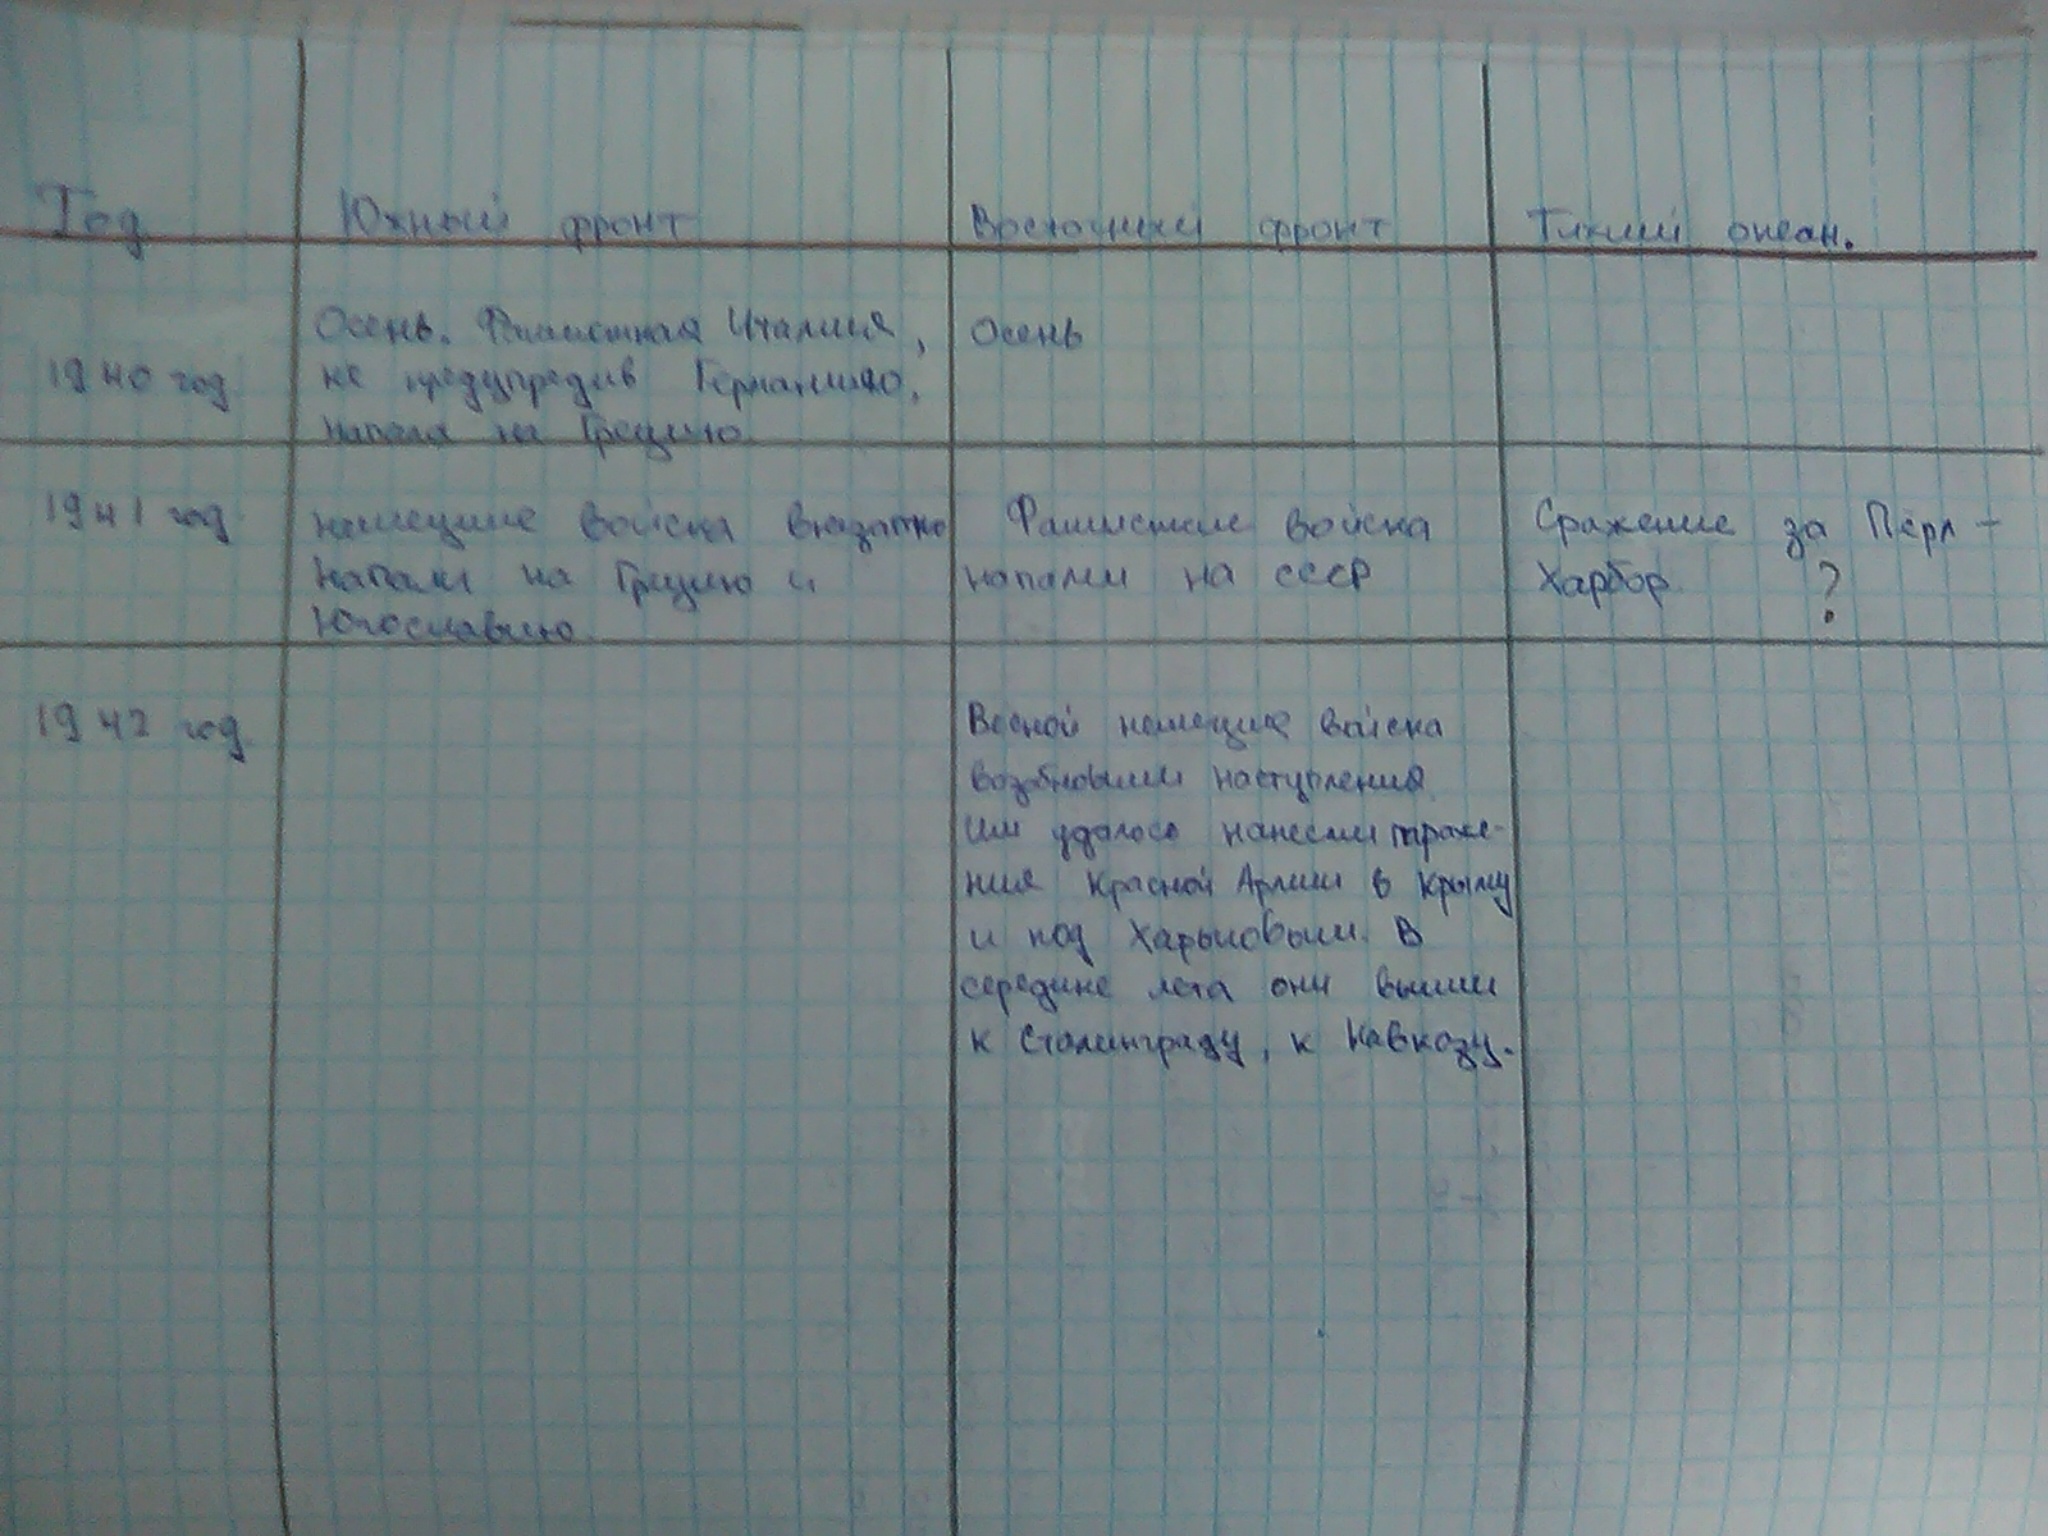 Год Южный фронт Восточный фронт Тихий океан.
Осень. Фашисткая Италия,
1940 год. не предупредив Германию,
напала на Грецию.
Осень
1941 год немецкие войска внезапно
напали на Грецию и
Югославию.
Фашисткие войска
напали на СССР
Сражение за Пёрл-
Харбор ?
1942 год.
Весной немецкие войска
возобновили наступления
Им удалось нанести пораже-
ния Красной Армии в Крыму
и под Харьковым. В
середине лета они вышли
к Сталинграду, к Кавказу.